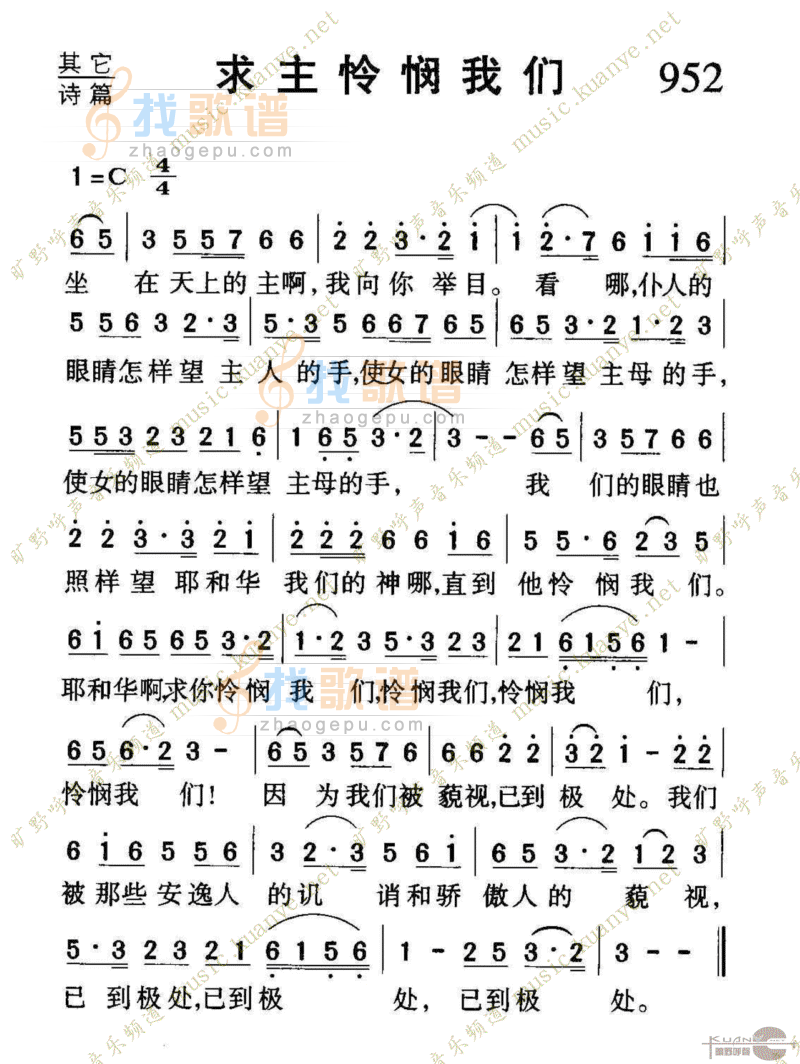 其它
诗篇
求主怜悯我们
952
1=C 4/4
65 | 3 5 5 7 6 6 | 2 2 3·2 1 | 1 2·7 6 1 1 6
坐 在天上的主啊,我向你 举目。看 哪,仆人的
5 5 6 3 2·3 | 5·3 5 6 6 7 6 5 | 6 5 3·2 1·2 3
眼睛怎样望 主 人 的手,使女的眼睛 怎样望 主母的手,
5 5 3 2 3 2 1 6 | 1 6 5 3·2 | 3 - - 6 5 | 3 5 7 6 6
使女的眼睛怎样望 主母的手, 我 们的眼睛也
2 2 3·3 2 1 | 2 2 2 6 6 1 6 | 5 5·6 2 3 5
照样望 耶和华 我们的神哪,直到 他怜 悯我 们。
6 1 6 5 6 5 3·2 | 1·2 3 5·3 2 3 | 2 1 6 1 5 6 1 -
耶和华啊,求你怜悯 我 们,怜悯我们,怜悯我 们,
6 5 6·2 3 - | 6 5 3 5 7 6 | 6 6 2 2 | 3 2 1 - 2 2
怜悯我 们! 因 为我们被 藐视,已到 极 处。我们
6 1 6 5 5 6 | 3 2·3 | 5 6 1 | 6 5 3·2 1 2 3
被那些安逸人 的讥 诮和骄 傲人的 藐 视,
5·3 2 3 2 1 6 1 5 6 | 1 - 2 5 3·2 | 3 - -
已 到极处,已到极 处, 已到极 处。
找歌谱
zhaogepu.com
找歌谱
zhaogepu.com
找歌谱
zhaogepu.com
旷野呼声音乐频道 music.kuanye.net
旷野呼声